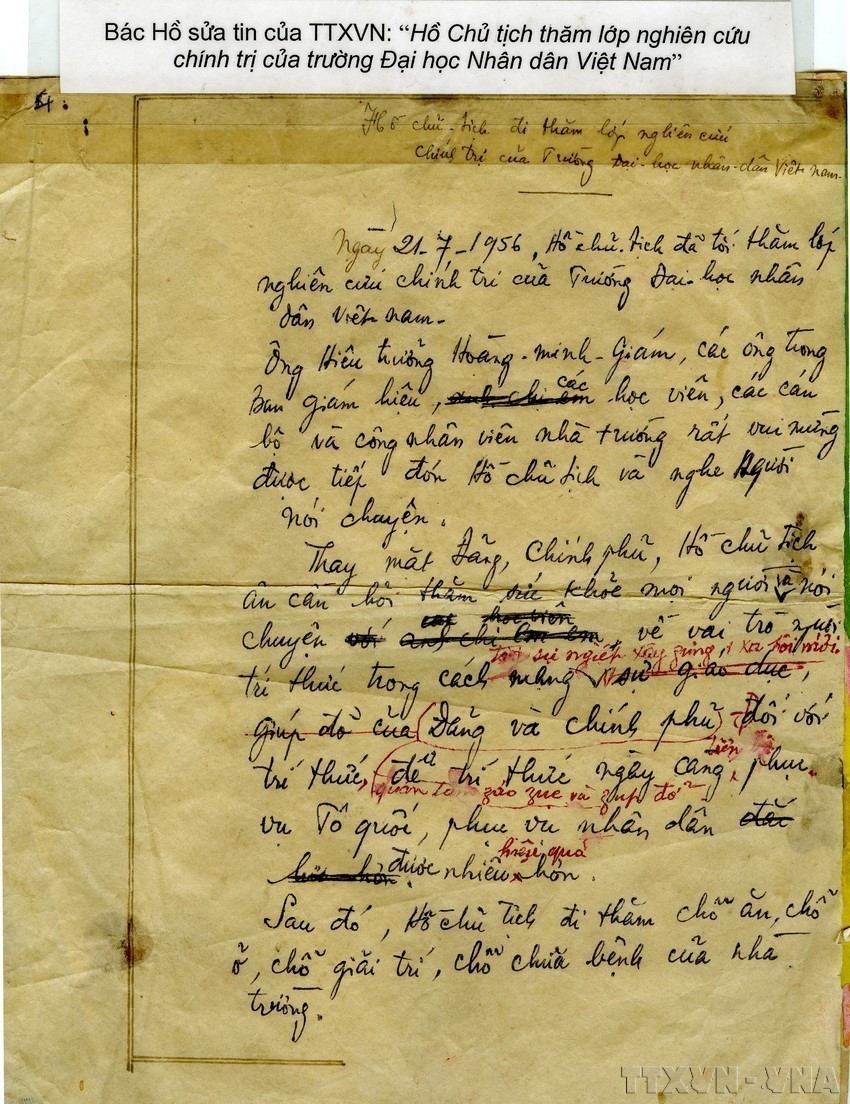 Bác Hồ sửa tin của TTXVN: “Hồ Chủ tịch thăm lớp nghiên cứu
chính trị của trường Đại học Nhân dân Việt Nam”
Hồ chủ-tịch đi thăm lớp nghiên cứu
chính trị của Trường Đại-học nhân-dân Việt-nam-
Ngày 21-7-1956, Hồ chủ-tịch đã tới thăm lớp
nghiên cứu chính trị của Trường Đại-học nhân
dân Việt-nam-
Ông Hiệu trưởng Hoàng-minh-Giám, các ông trong
các
Ban giám hiệu, anh chị em học viên, các cán
bộ và công nhân viên nhà trường rất vui mừng
được tiếp đón Hồ chủ tịch và nghe Người
nói chuyện.
Thay mặt Đảng, Chính phủ, Hồ chủ tịch
ân cần hỏi thăm sức khỏe mọi người và nói
các học viên
chuyện với anh chị em, về vai trò người
sự nghiệp xây zựng xã hội mới
trí thức trong cách mạng, sự giáo dục,
giúp đỡ của Đảng và chính phủ đối với
tiến bộ
trí thức, để trí thức ngày càng phục
quan tâm záo zục và zúp đỡ
vụ Tổ quốc, phục vụ nhân dân đắc
hiệu quả
hơn được nhiều hơn.
Sau đó, Hồ chủ tịch đi thăm chỗ ăn, chỗ
ở, chỗ giải trí, chỗ chữa bệnh của nhà
trường.
TTXVN-VNA